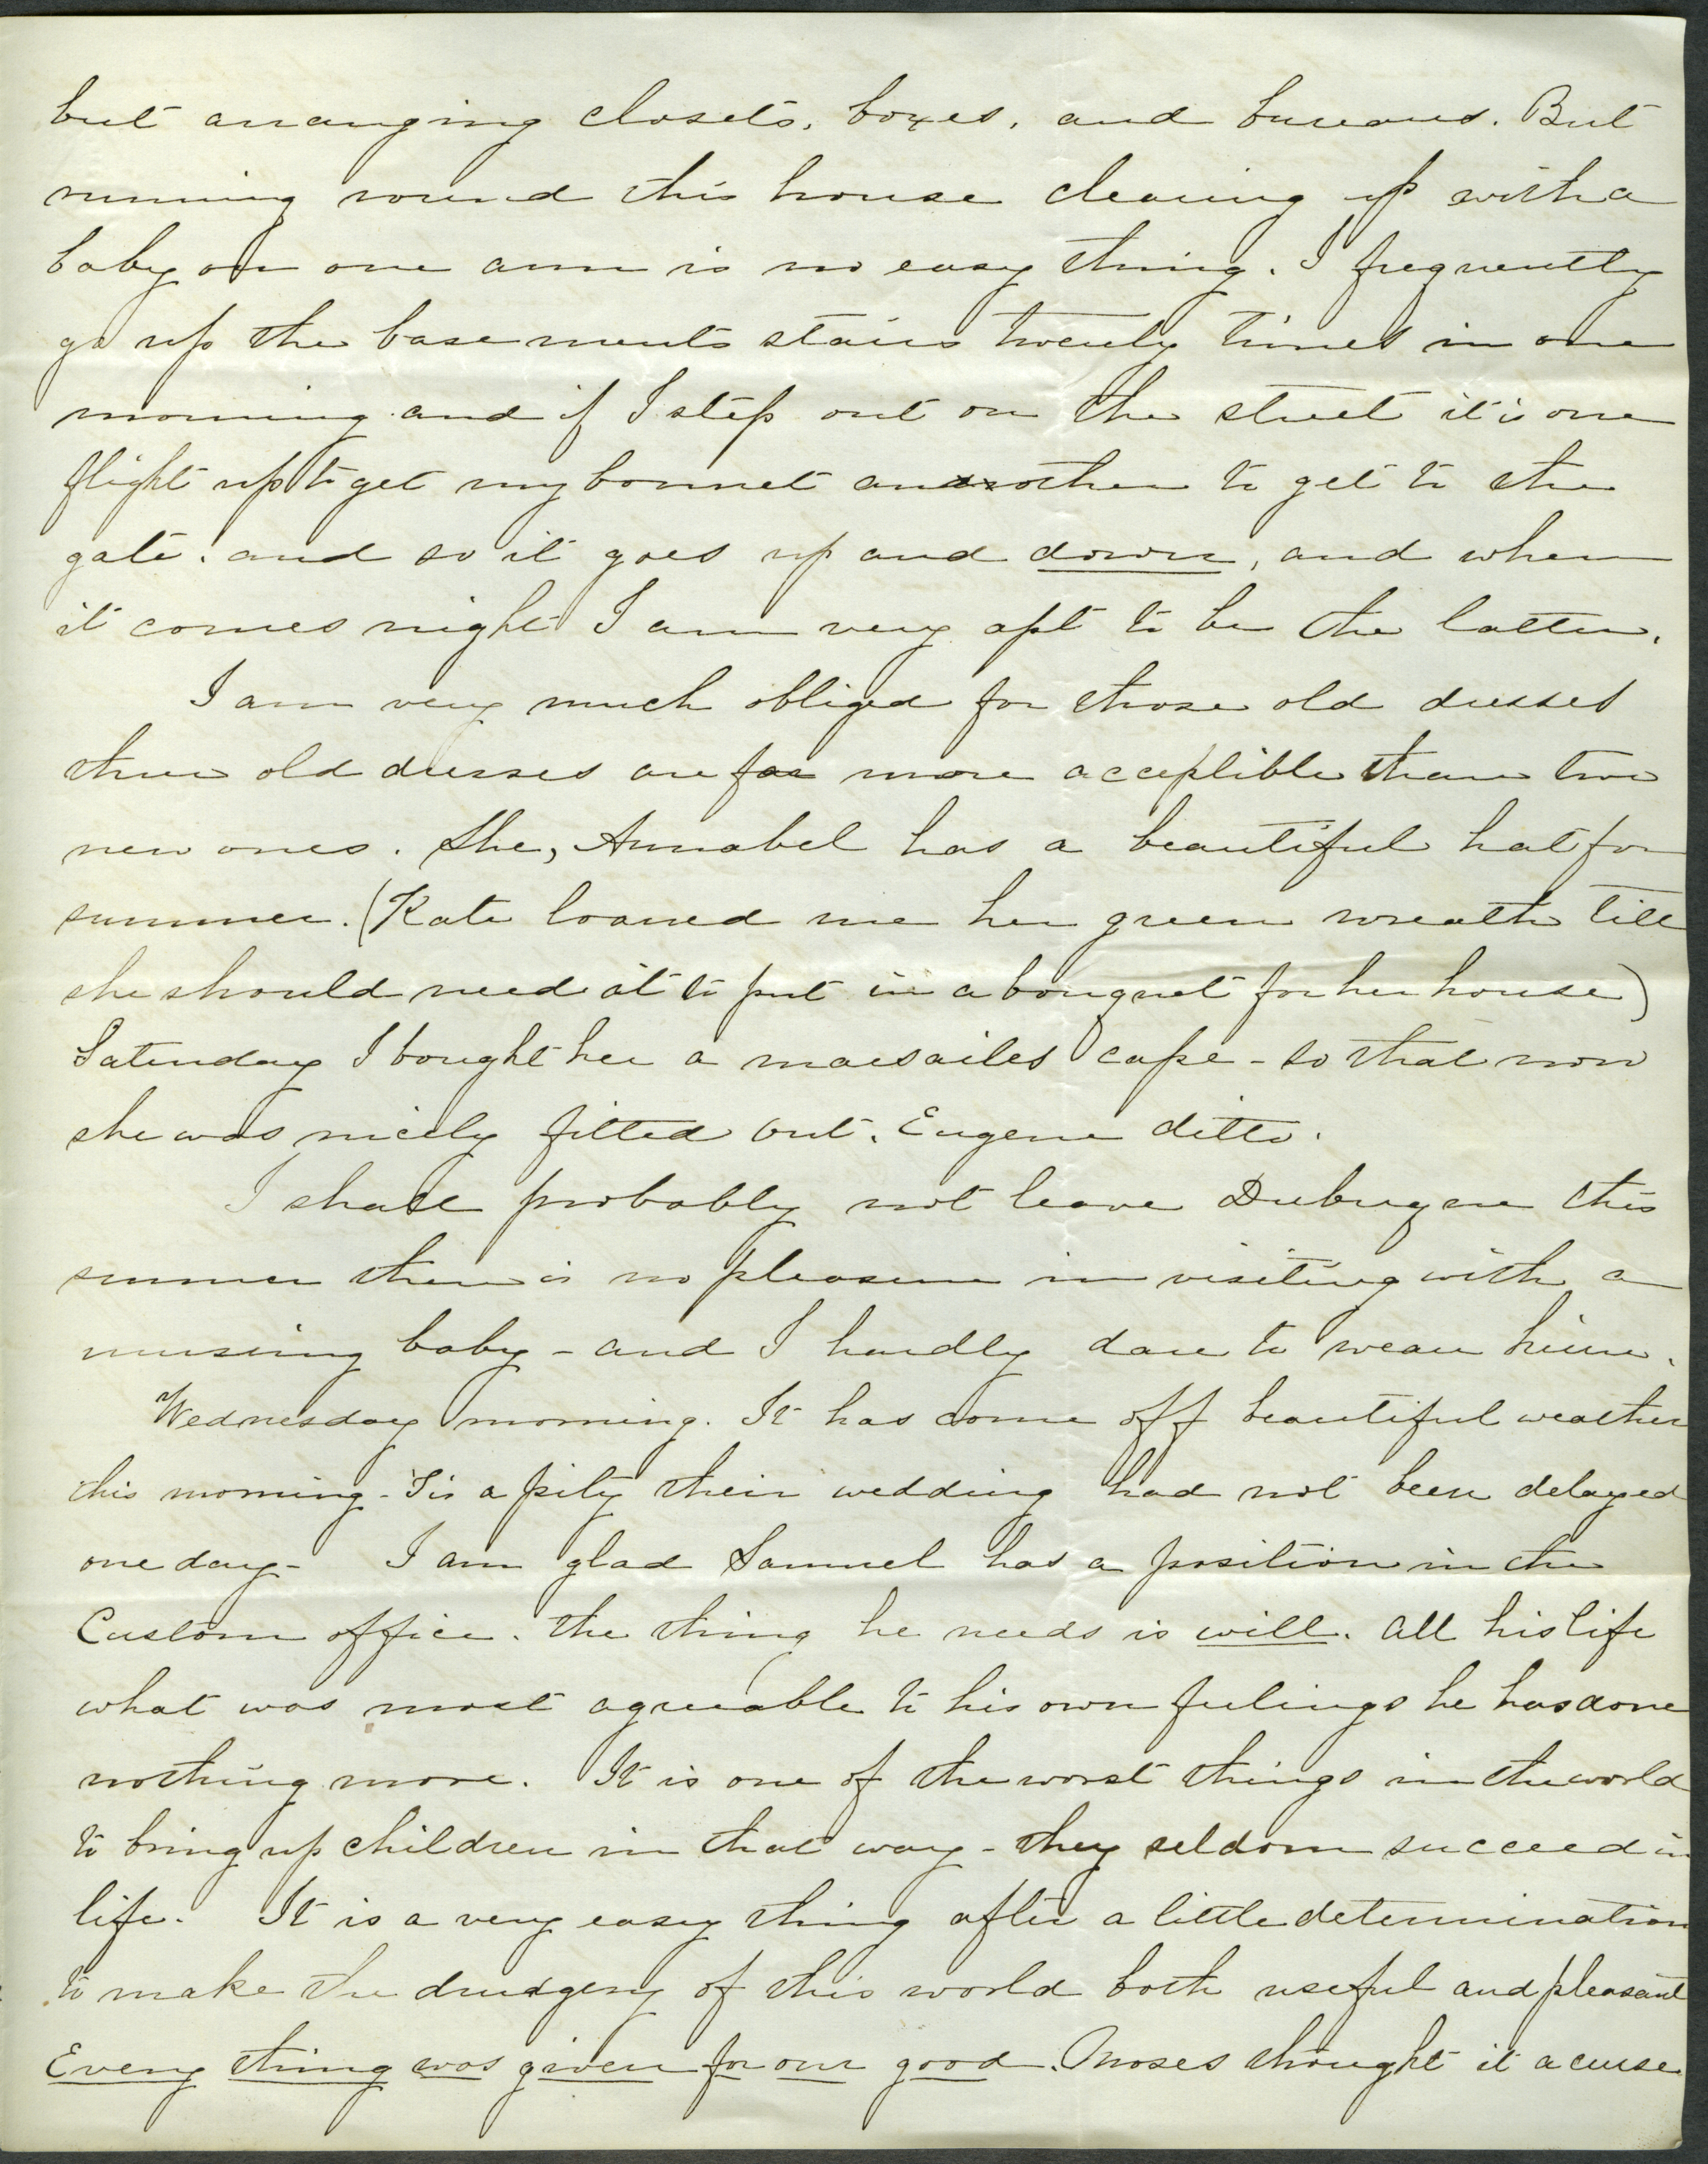 but arranging closets, boxes, and bureaus. But
running round this house clearing up with a
baby on one arm is no easy thing. I frequently
go up the basements stairs twenty times in one
morning and if I step out on the street it is one
flight up to get my bonnet another to get to the
gate. and so it goes up and down, and when
it comes night I am very apt to be the latter.
I am very much obliged for those old dresses
three old dresses are far more acceptible than two
new ones. She, Annabel has a beautiful hat for
summer. (Kate loaned me her green wreath till
she should need it to put in a bouquet for her house)
Saturday I bought her a marsailes cape - so that now
she was nicely fitted out. Eugene ditto.
I shall probably not leave Dubuque this
summer there is no pleasure in visiting with a
nursing baby - and I hardly dare to wean him.
Wednesday morning. It has come off beautiful weather
this morning - Tis a pity their wedding had not been delayed
one day - I am glad Samuel has a position in the
Custom office. the thing he needs is will. all his life
what was most agreeable to his own feelings he has done
nothing more. It is one of the worst things in the world
to bring up children in that way - they seldom succeed in
life. It is a very easy thing after a little determination
to make the drudgery of this world both useful and pleasant
Every thing was given for our good. Moses thought it a curse